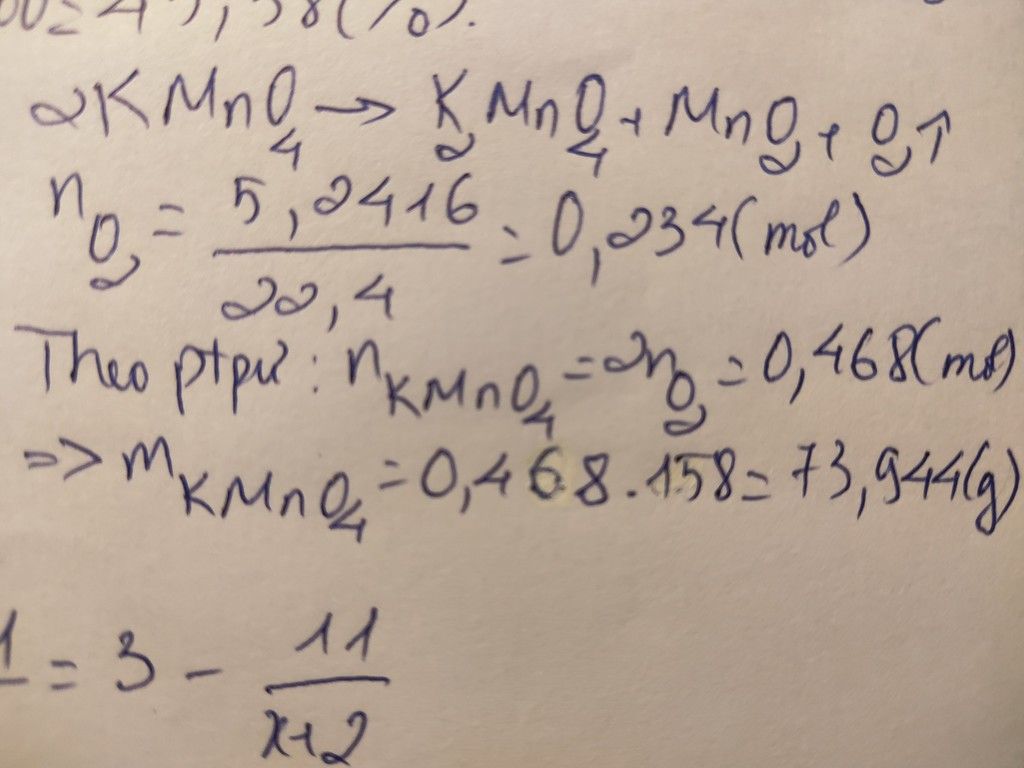 00 = 43,58(%).
2KMnO₄ → K₂MnO₄ + MnO₂ + O₂↑
n_O₂ = 5,2416 / 22,4 = 0,234(mol)
Theo ptpứ : n_KMnO₄ = 2n_O₂ = 0,468(mol)
=> m_KMnO₄ = 0,468.158 = 73,944(g)
1 = 3 - 11 / x+2